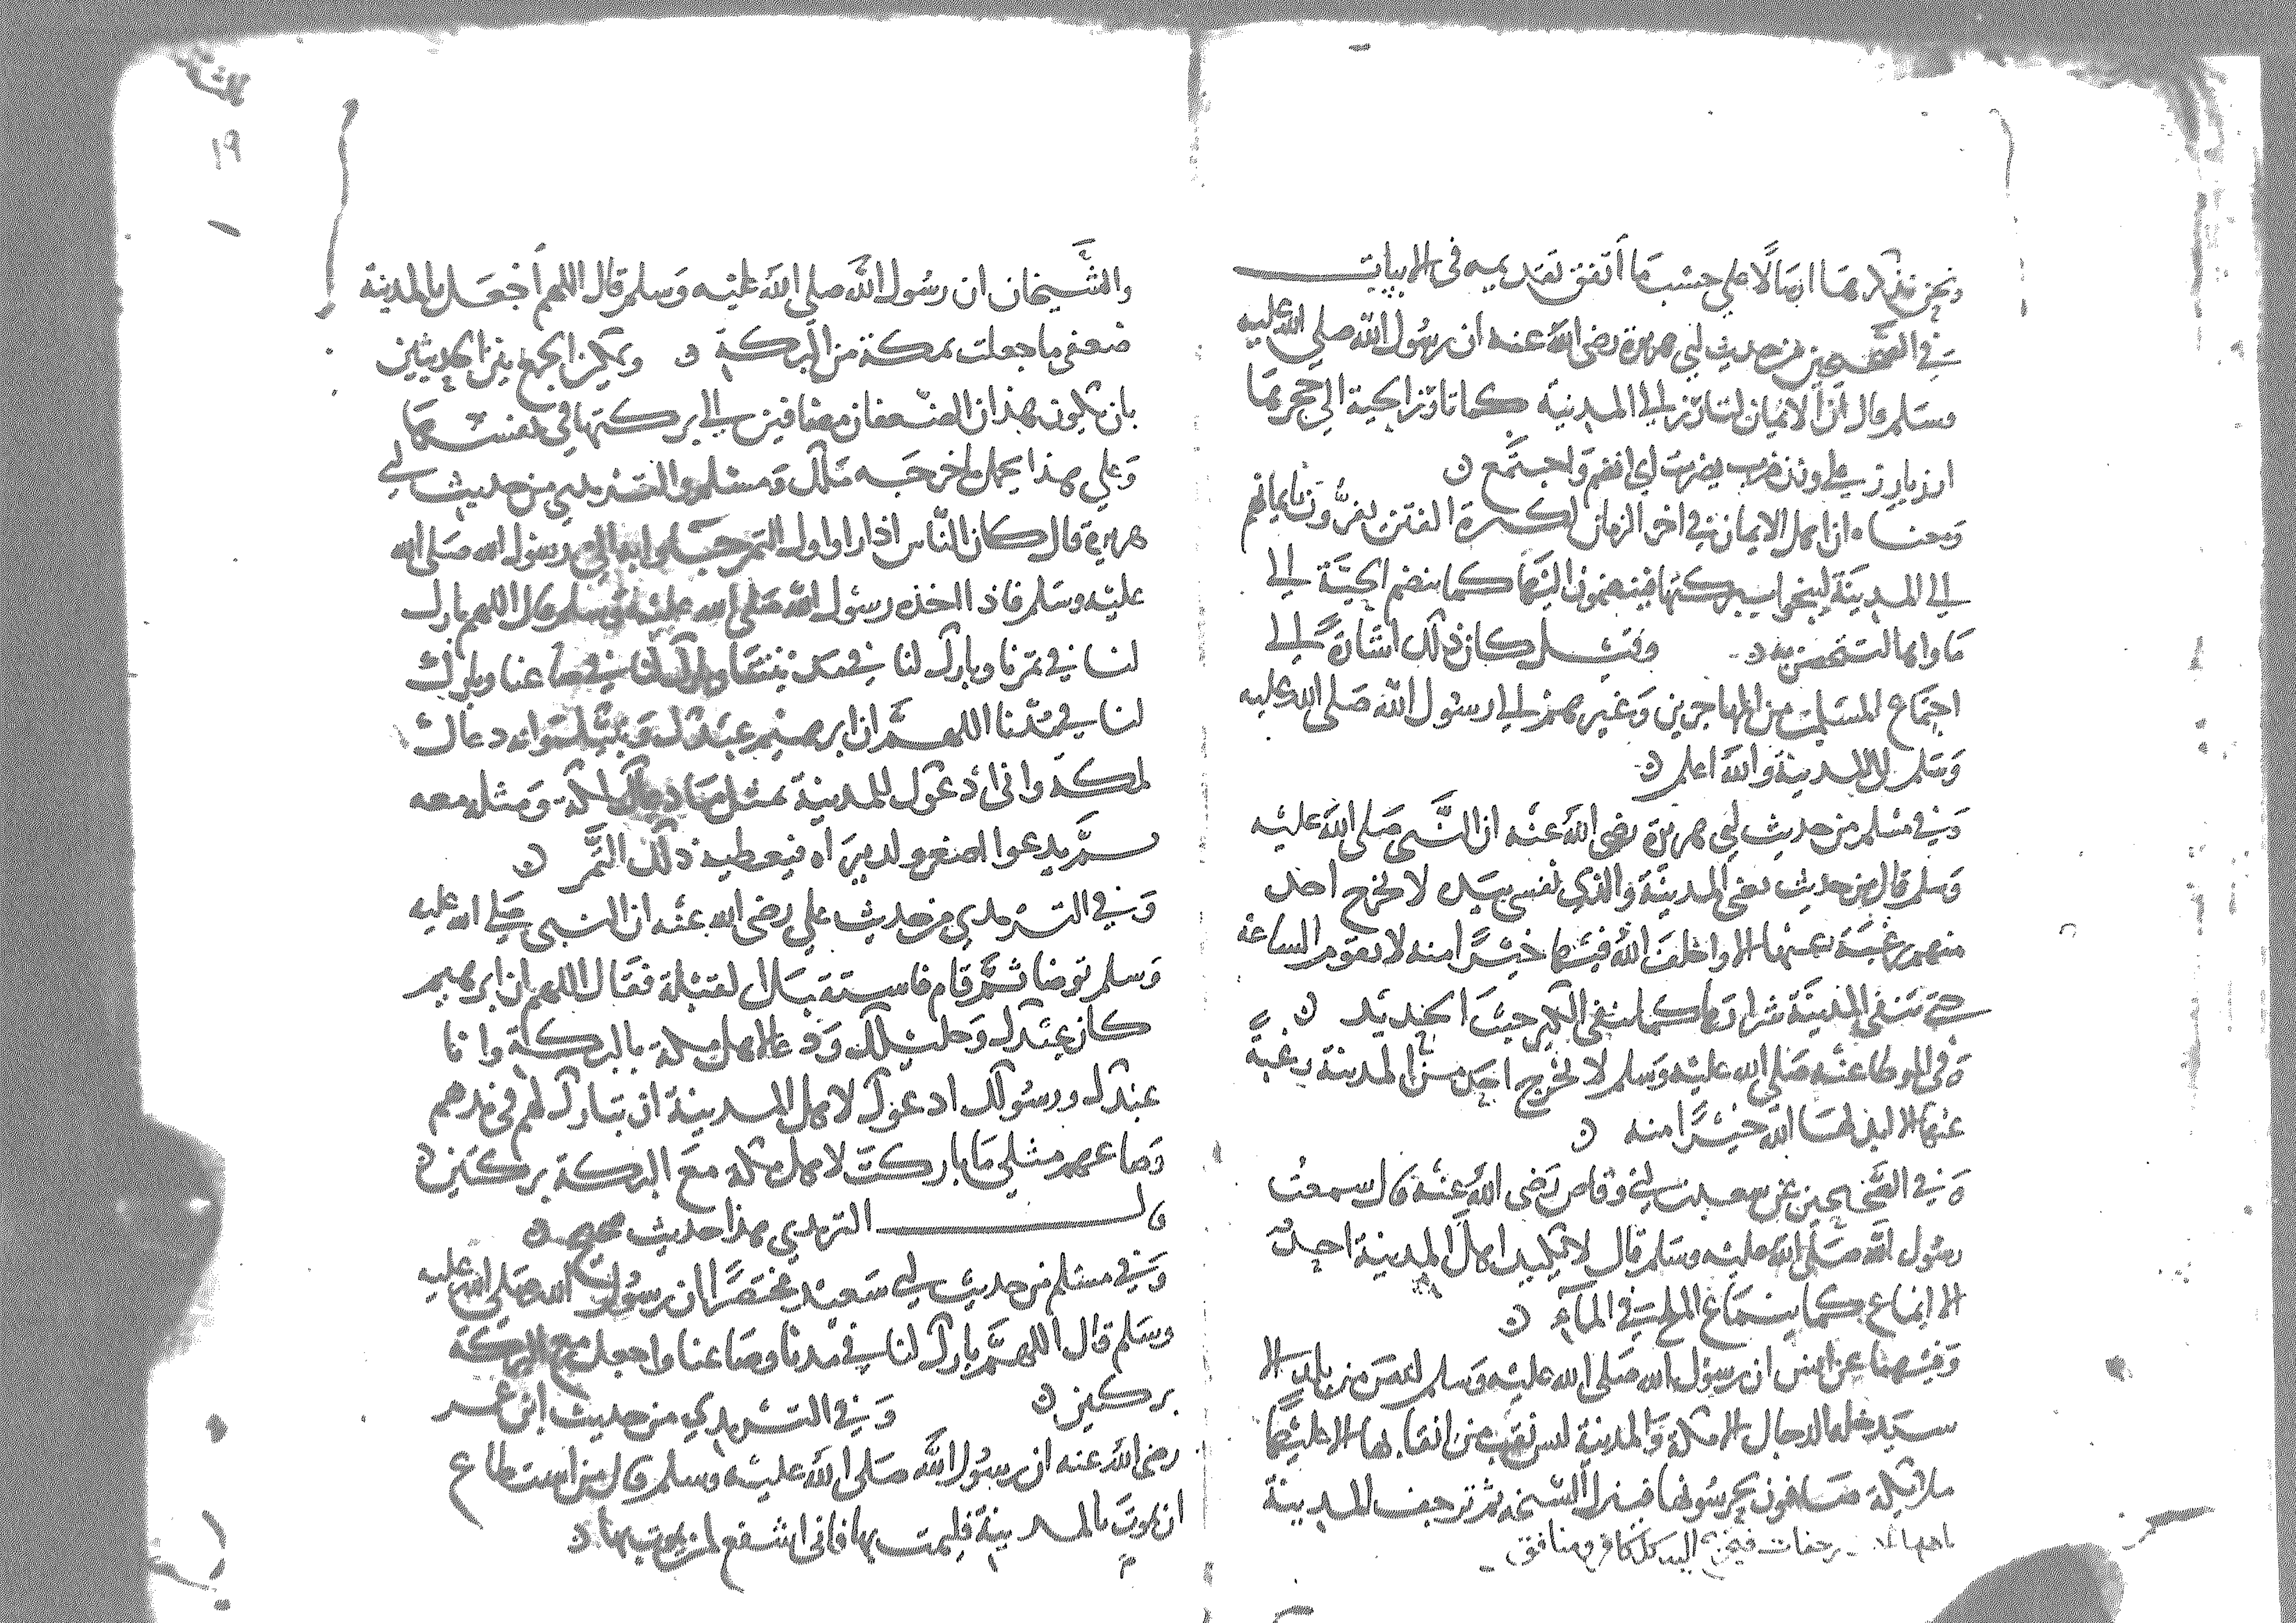 ونحن نذكرها ارسالا على حسب ما اتفق تقديمه في الابيات
في الصحيحين من حديث ابي هريرة رضى الله عنه ان رسول الله صلى الله عليه
وسلم قال ان الايمان ليأرز الى المدينة كما تأرز الحية الى جحرها
ارز يارز على وزن ضرب يضرب اي انضم واجتمع
ومعناه ان اهل الايمان في اخر الزمان لكثرة الفتن يفرون بايمانهم
الى المدينة لينجوا ببركتها فينضمون اليها كما تنضم الحية الى
ماواها لتتحصن به وقيل كان ذلك اشارة الى
اجتماع المسلمين من المهاجرين وغيرهم الى رسول الله صلى الله عليه
وسلم الى المدينة والله اعلم
وفي مسلم من حديث ابي هريرة رضى الله عنه ان النبي صلى الله عليه
وسلم قال من حديث يعني المدينة والذي نفسي بيده لا يخرج احد
منهم رغبة عنها الا واخلف الله فيها خيرا منه لا تقوم الساعة
حتى تنفي المدينة شرارها كما ينفي الكير خبث الحديد
وفي الموطا عنه صلى الله عليه وسلم لا يخرج احد من المدينة رغبة
عنها الا ابدلها الله خيرا منه
وفي الصحيحين عن سعد بن ابي وقاص رضى الله عنه قال سمعت
رسول الله صلى الله عليه وسلم قال لا يكيد اهل المدينة احد
الا انماع كما ينماع الملح في الماء
وفيهما عن انس ان رسول الله صلى الله عليه وسلم ليس من بلد الا
سيدخله الدجال الا مكة والمدينة ليس نقب من انقابها الا عليها
ملائكة صافون يحرسونها فينزل السبخة ثم ترجف المدينة
باهلها رجفات فيخرج اليه كل كافر ومنافق
١٩
والشيخان ان رسول الله صلى الله عليه وسلم قال اللهم اجعل بالمدينة
ضعفي ما جعلت بمكة من البركة ويمكن الجمع بين الحديثين
بان يكون هذان الضعفان مضافين الى بركتها في نفسها
وعلى هذا يحمل ما خرجه مالك ومسلم والترمذي من حديث ابي
هريرة قال كان الناس اذا راوا اول الثمر جاوا به الى رسول الله صلى الله
عليه وسلم فاذا اخذه رسول الله صلى الله عليه وسلم قال اللهم بارك
لنا في ثمرنا وبارك لنا في مدينتنا وبارك لنا في صاعنا وبارك
لنا في مدنا اللهم ان ابرهيم عبدك ونبيك وانه دعاك
لمكة واني ادعوك للمدينة بمثل ما دعاك لمكة ومثله معه
ثم يدعوا اصغر وليد يراه فيعطيه ذلك الثمر
وفي الترمذي من حديث علي رضى الله عنه ان النبي صلى الله عليه
وسلم توضا ثم قام فاستقبل القبلة فقال اللهم ان ابرهيم
كان عبدك وخليلك ودعا لاهل مكة بالبركة وانا
عبدك ورسولك ادعوك لاهل المدينة ان تبارك لهم في مدهم
وصاعهم مثلي ما باركت لاهل مكة مع البركة بركتين
قال الترمذي هذا حديث صحيح
وفي مسلم من حديث ابي سعيد مختصرا ان رسول الله صلى الله عليه
وسلم قال اللهم بارك لنا في مدنا وصاعنا واجعل مع البركة
بركتين وفي الترمذي من حديث ابن عمر
رضى الله عنه ان رسول الله صلى الله عليه وسلم قال من استطاع
ان يموت بالمدينة فليمت بها فاني اشفع لمن يموت بها